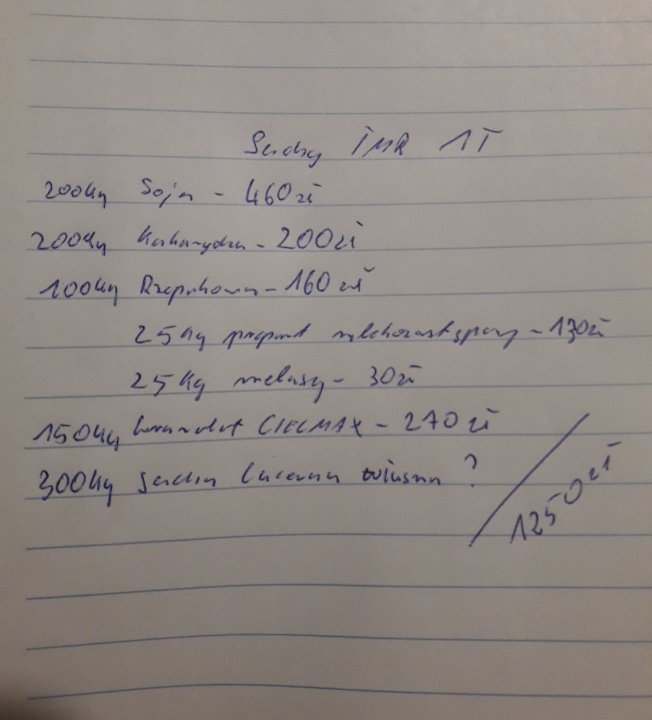 Suchy TMR 1T
200kg Soja - 460 zł
200kg Kukurydza - 200 zł
100kg Rzepakowa - 160 zł
25 kg preparat mlekozastępczy - 130 zł
25 kg melasy - 30 zł
150kg Granulat CIELMAX - 270 zł
300kg sucha Lucerna własna ?
1250 zł